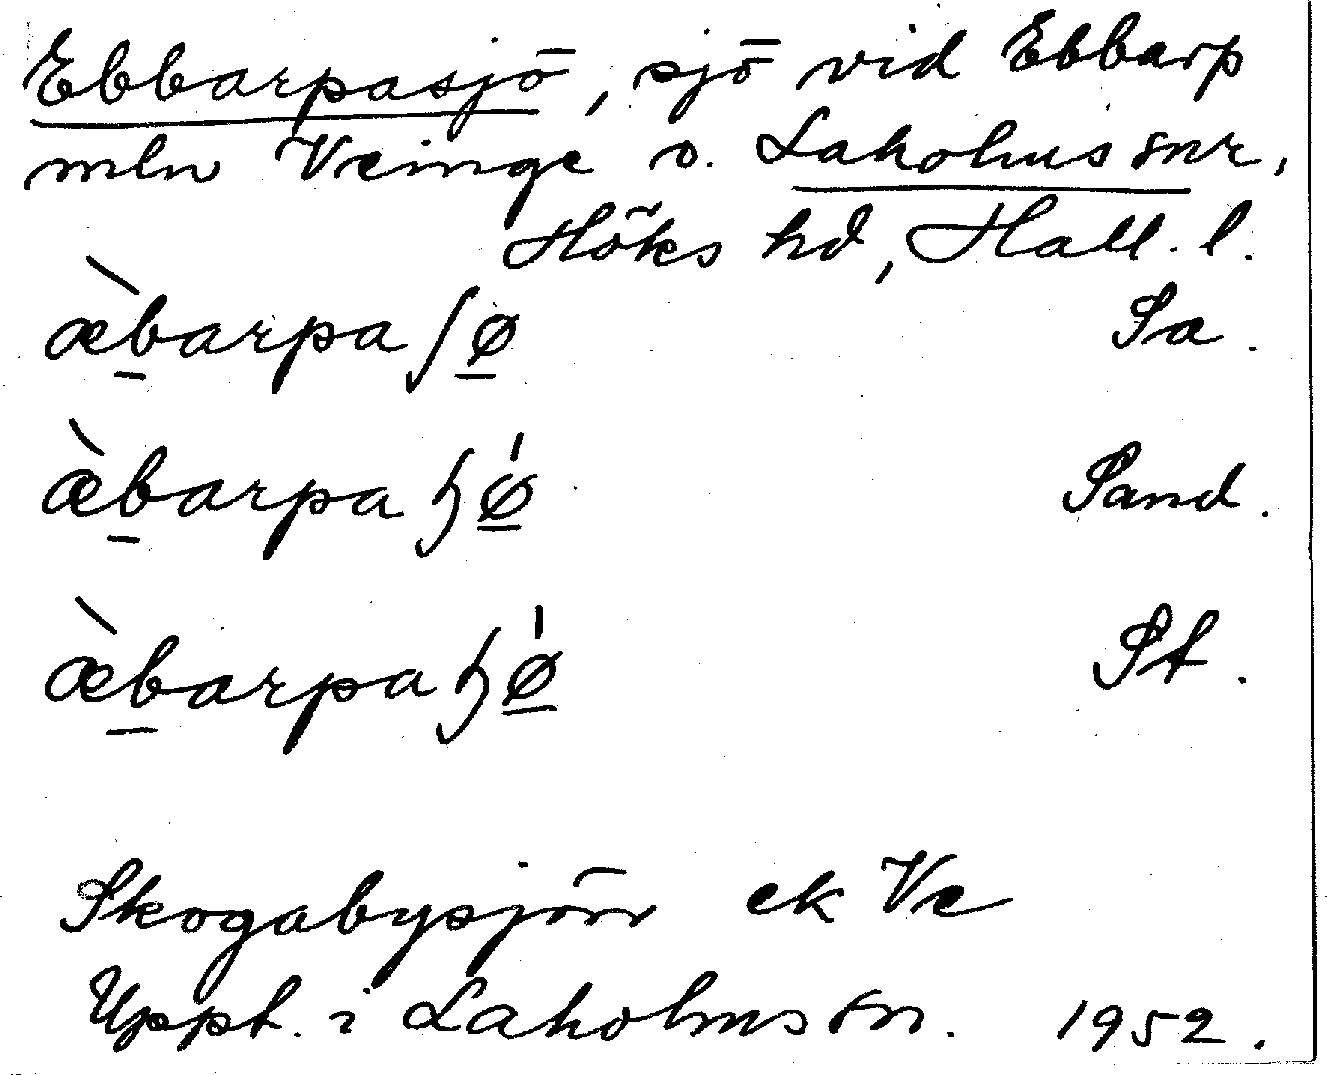 Ebbarpasjö, sjö vid Ebbarp
mln Veinge o. Laholms snr,
Höks hd, Hall. l.
æ̀b̲arpaʃø̲ Sa.
æ̀b̲arpaɧǿ̲ Sand.
æ̀b̲arpaɧǿ̲ St.
Skogabysjön ek Ve
Uppt. i Laholms sn. 1952.